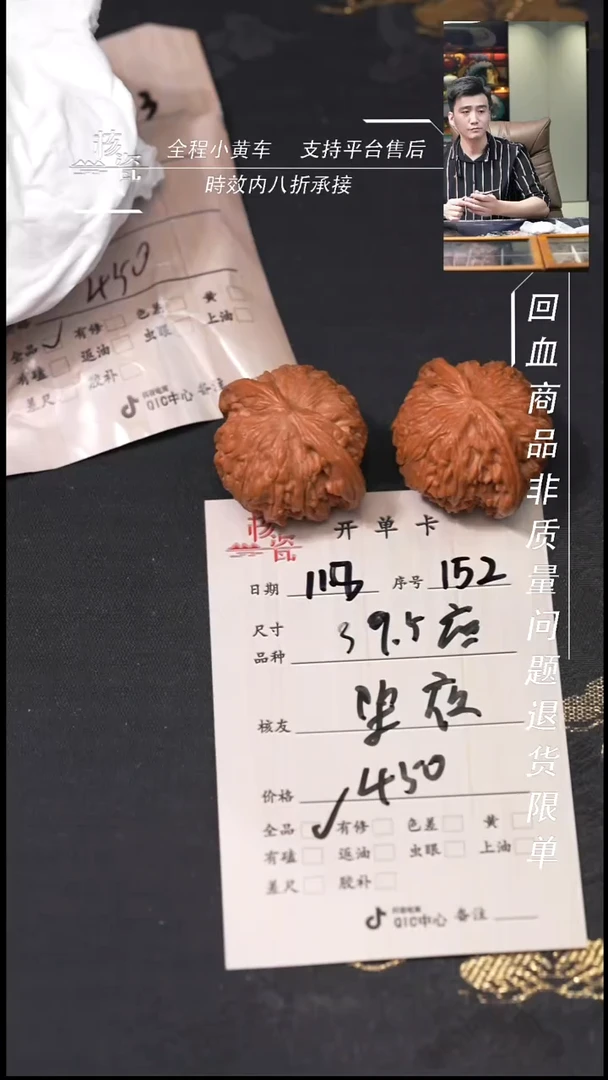 3
核瓷
全程小黄车 支持平台售后
時效内八折承接
回血商品非质量问题退货限单
450
全品 ✓ 有修 色差 黄
有磕 返油 虫眼 上油
差尺 胶补
QIC中心 备注
核瓷 开单卡
日期 序号 152
尺寸 39.5
品种
核友 夜
价格 450
全品 ✓ 有修 色差 黄
有磕 返油 虫眼 上油
差尺 胶补
抖音电商
QIC中心 备注